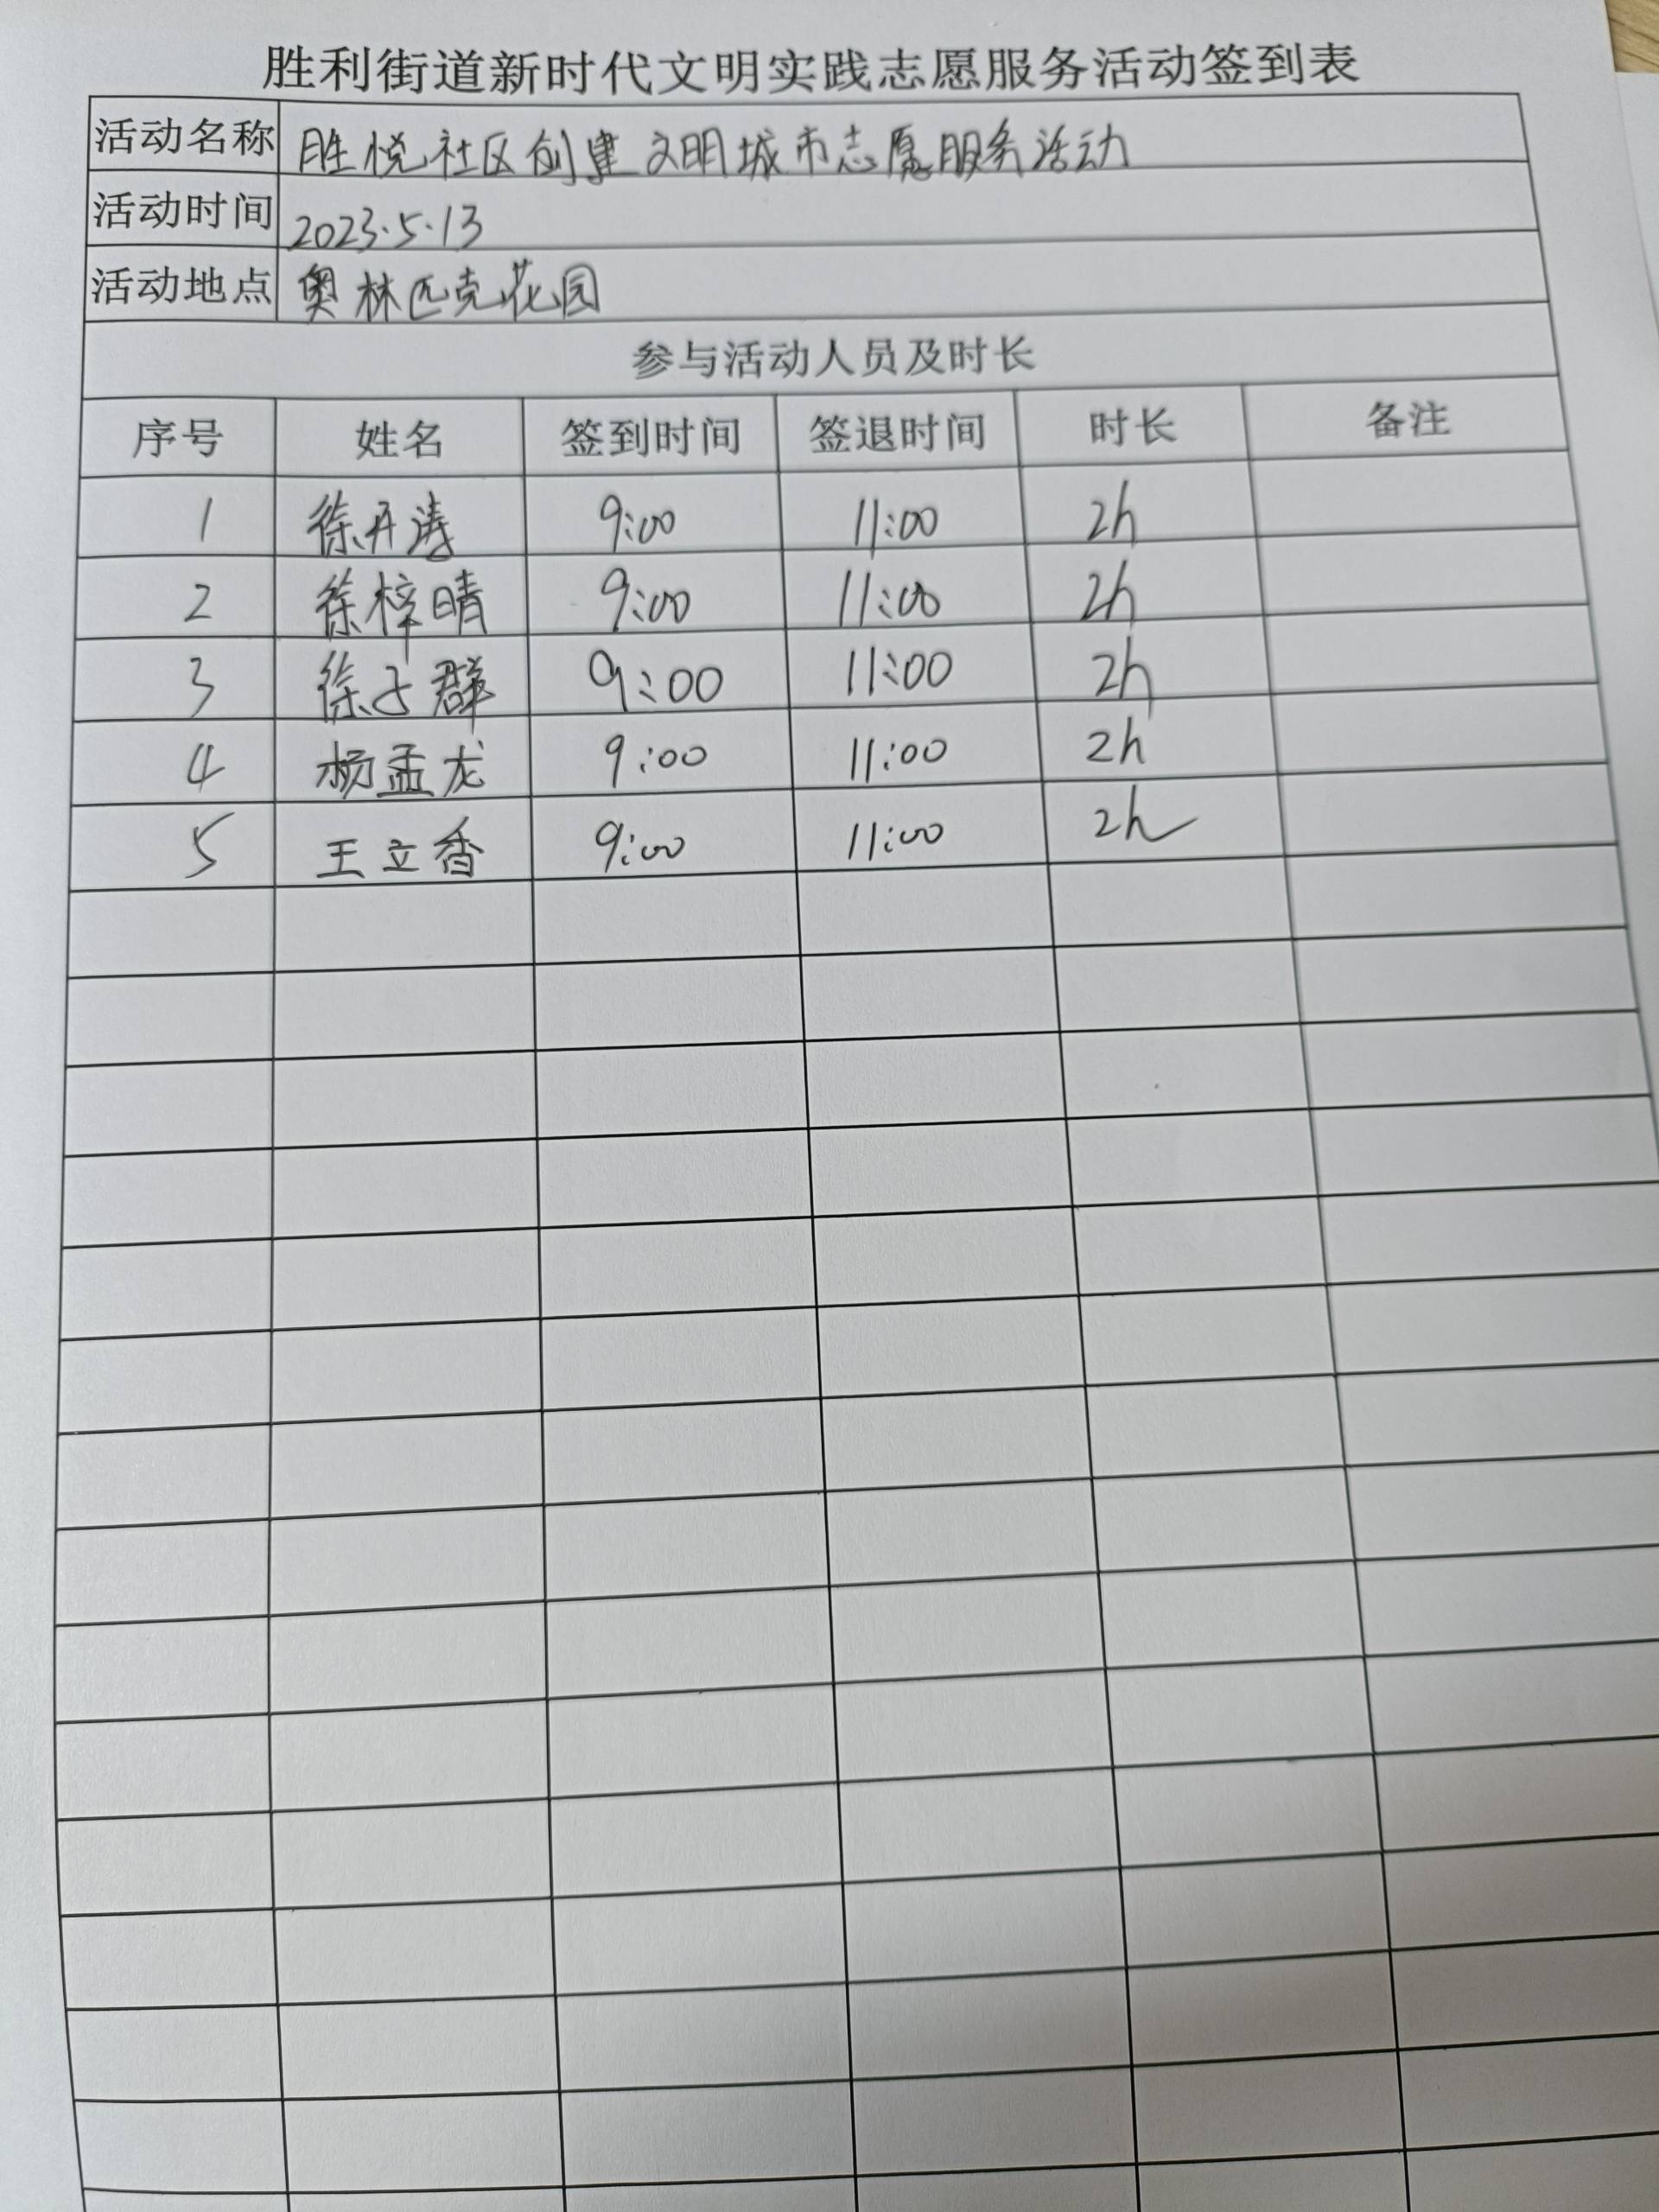 胜利街道新时代文明实践志愿服务活动签到表
活动名称 胜悦社区创建文明城市志愿服务活动
活动时间 2023.5.13
活动地点 奥林匹克花园
参与活动人员及时长
序号 姓名 签到时间 签退时间 时长 备注
1 徐开涛 9:00 11:00 2h
2 徐梓晴 9:00 11:00 2h
3 徐子群 9:00 11:00 2h
4 杨孟龙 9:00 11:00 2h
5 王立香 9:00 11:00 2h